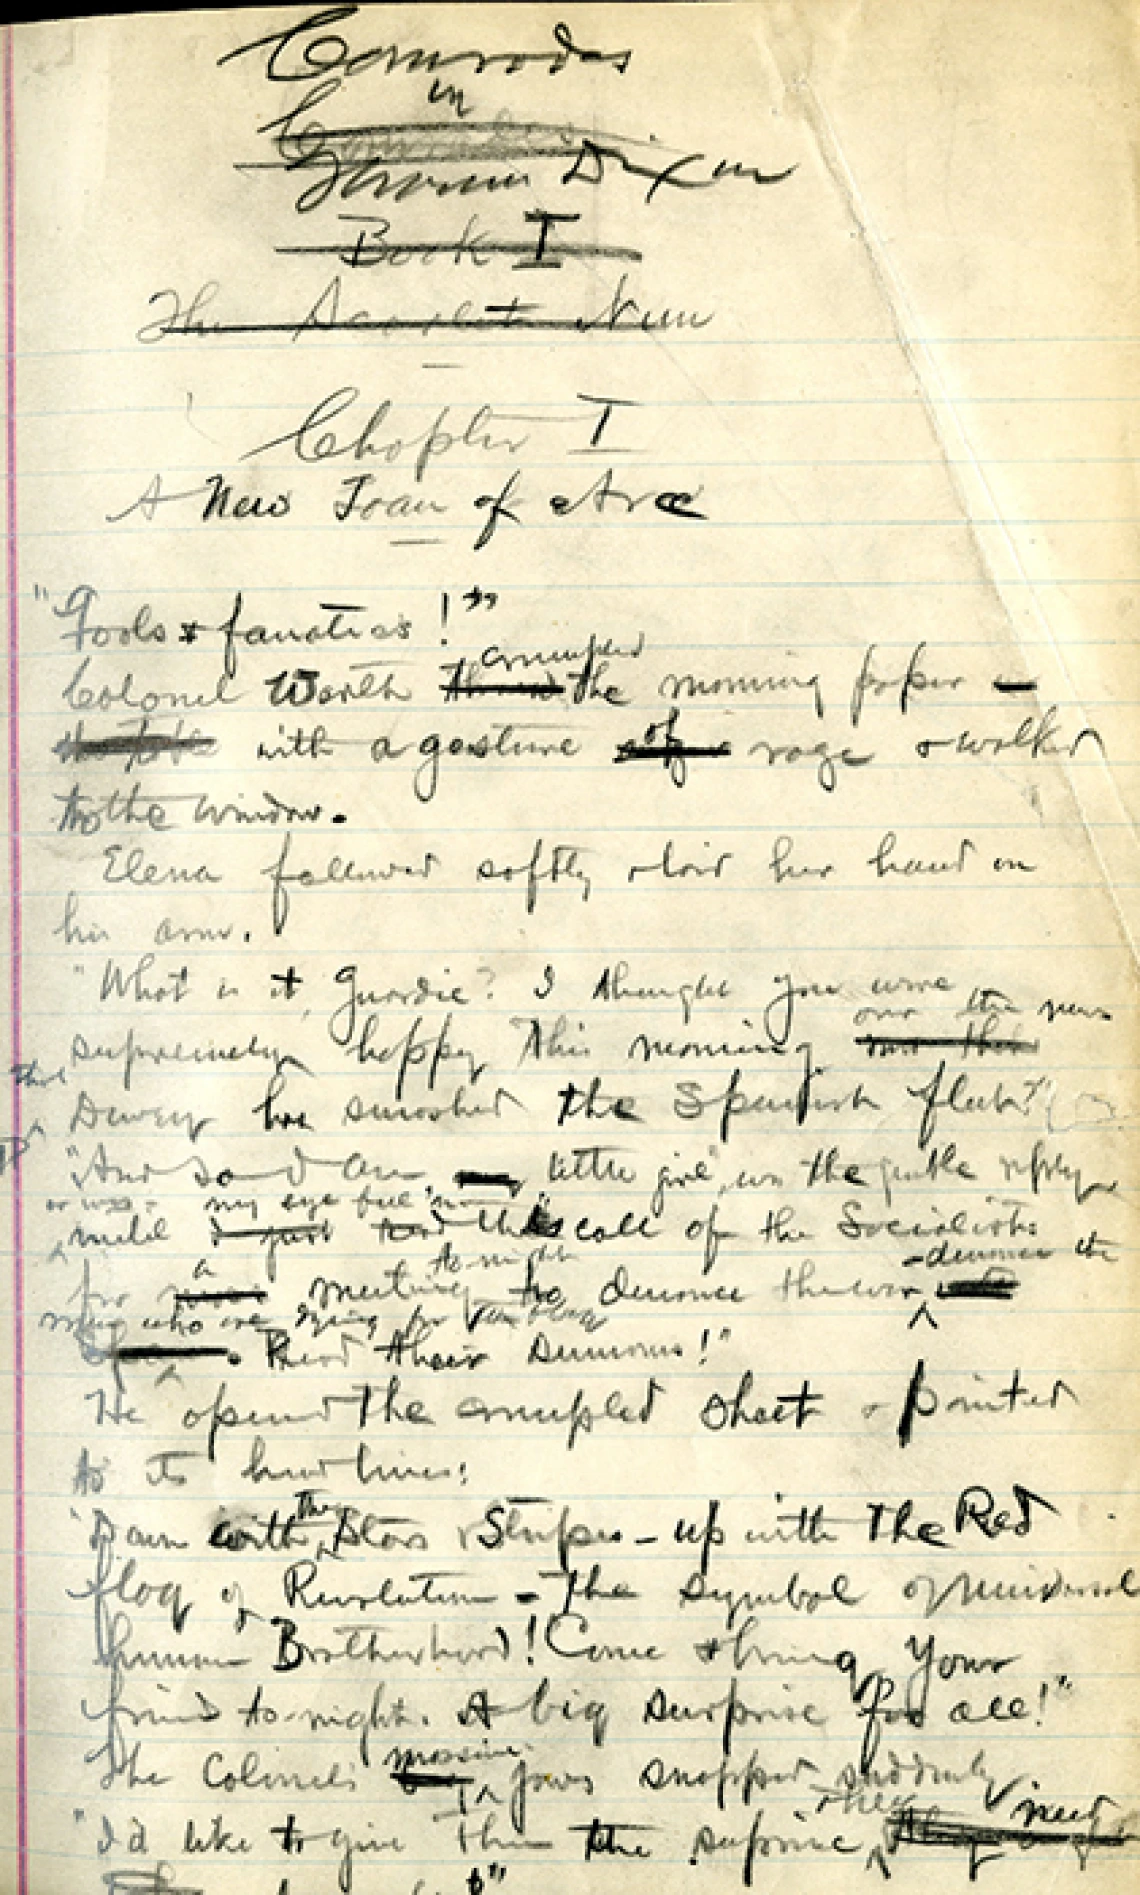 Comrades
in
Thomas Dixon
Book I
The Scarlet Nun
Chapter I
A New Joan of Arc
"Fools & fanatics!"
crumpled
Colonel Worth the morning paper
with a gesture of rage & walked
to the window.
Elena followed softly & laid her hand on
his arm.
"What is it, Guardie? I thought you were
over the news
supremely happy this morning
that
Dewey has smashed the Spanish fleet?"
"And so I am, little girl", was the gentle reply
my eye fell on
until I just read this call of the Socialists
a to-night denounce the
for meeting to denounce the war
men who are dying for
Read their summons!"
He opened the crumpled sheet & pointed
to its head lines:
the
"Down with Stars & Stripes - up with the Red
flag of Revolution - the symbol of universal
human Brotherhood! Come & bring your
friend to-night. A big surprise for all!"
massive
The Colonel's jaws snapped suddenly
they need
"I'd like to give them the suprise